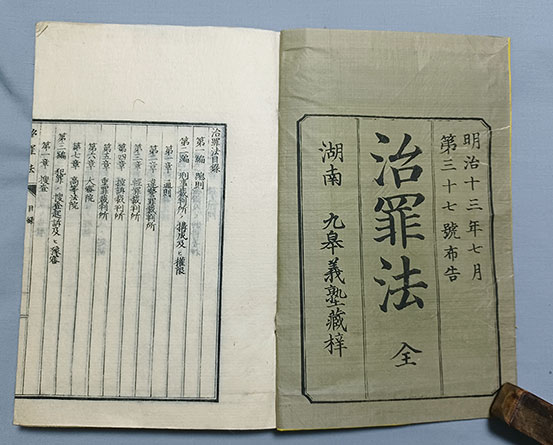 明治十三年七月
第三十七號布告
治罪法 全
湖南 九皋義塾藏梓
治罪法目錄
第一編 總則
第二編 刑事裁判所ノ搆成及ヒ權限
第一章 通則
第二章 違警罪裁判所
第三章 輕罪裁判所
第四章 控訴裁判所
第五章 重罪裁判所
第六章 大審院
第七章 高等法院
第三編 犯罪ノ搜查起訴及ヒ豫審
第一章 搜查
治罪法 目錄